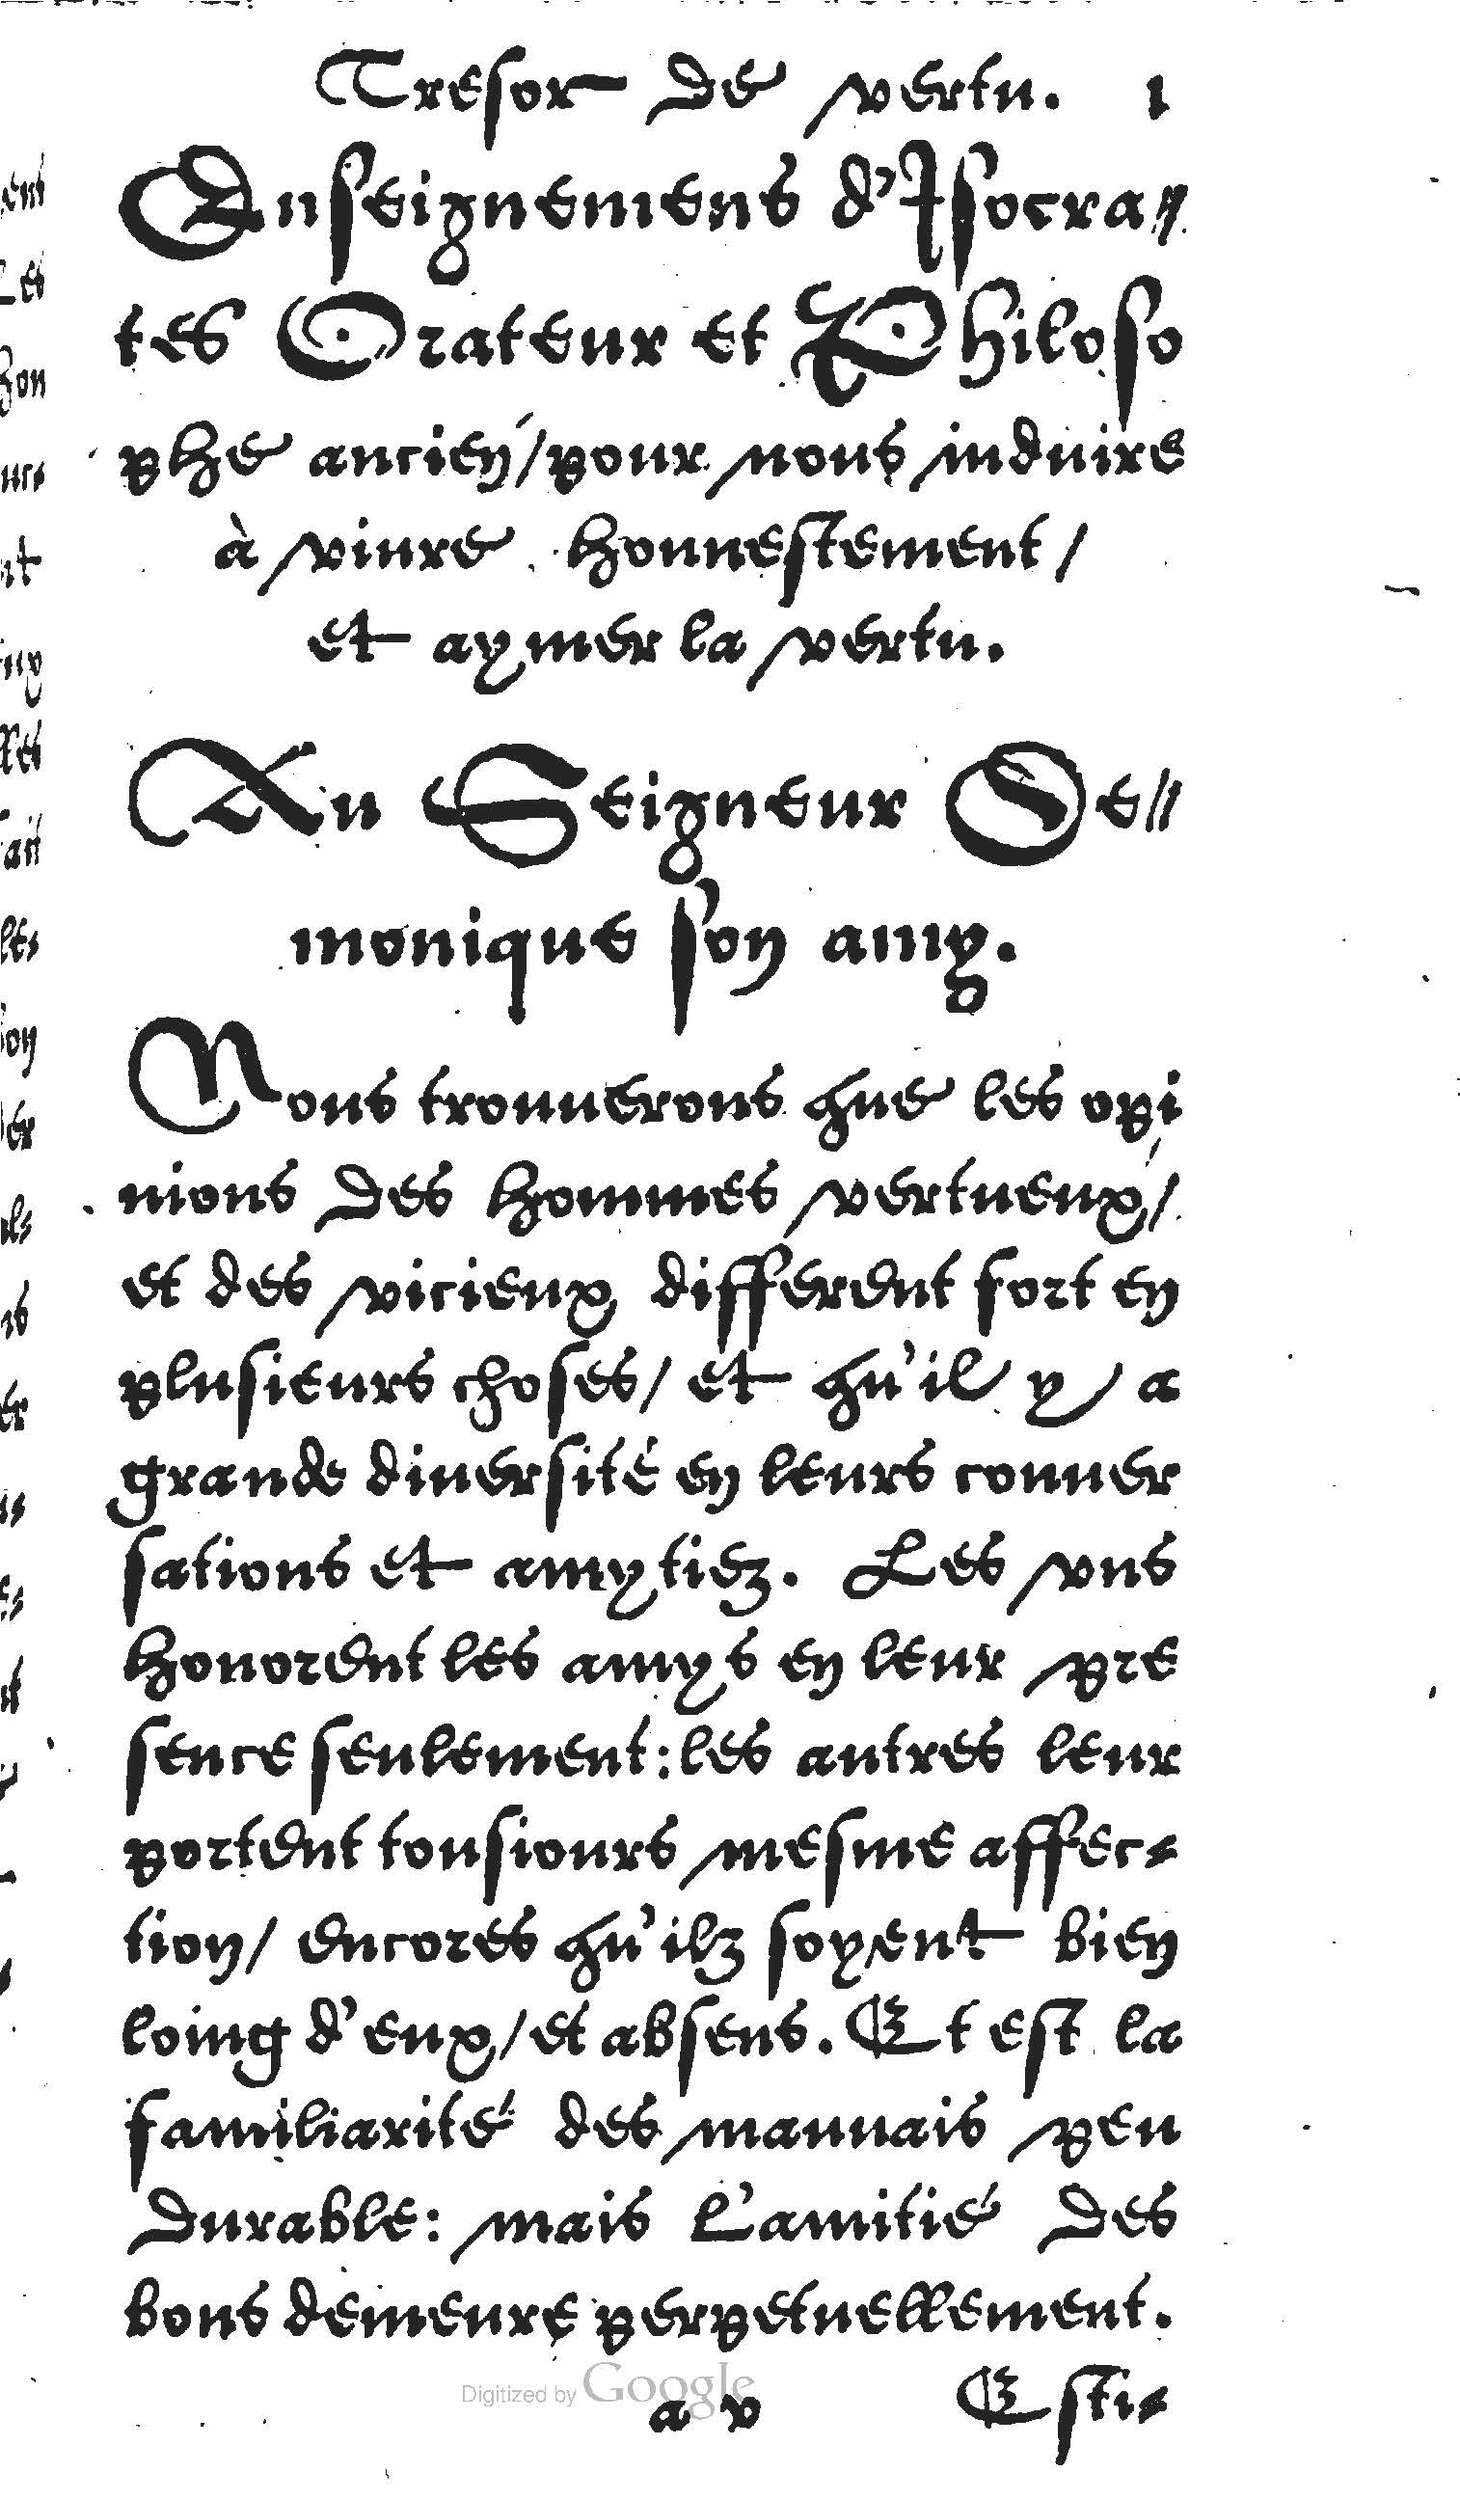 Tresor de vertu. 1
Enseignemens d'Isocra//
tes Orateur et Philoso
phe ancien/pour nous induire
à viure honnestement/
et aymer la vertu.
Au Seigneur De//
monique son amy.
Nous trouuerons que les opi
nions des hommes vertueux/
et des vicieux different fort en
plusieurs choses/ et qu'il y a
grande diuersité en leurs conuer
sations et amytiez. Les vns
honorent les amys en leur pre
sence seulement: les autres leur
portent tousiours mesme affec-
tion/ encores qu'ilz soyent bien
loing d'eux/et absens. Et est la
familiarité des mauuais peu
durable: mais l'amitié des
bons demeure perpetuellement.
Digitized by Google
a v Esti-